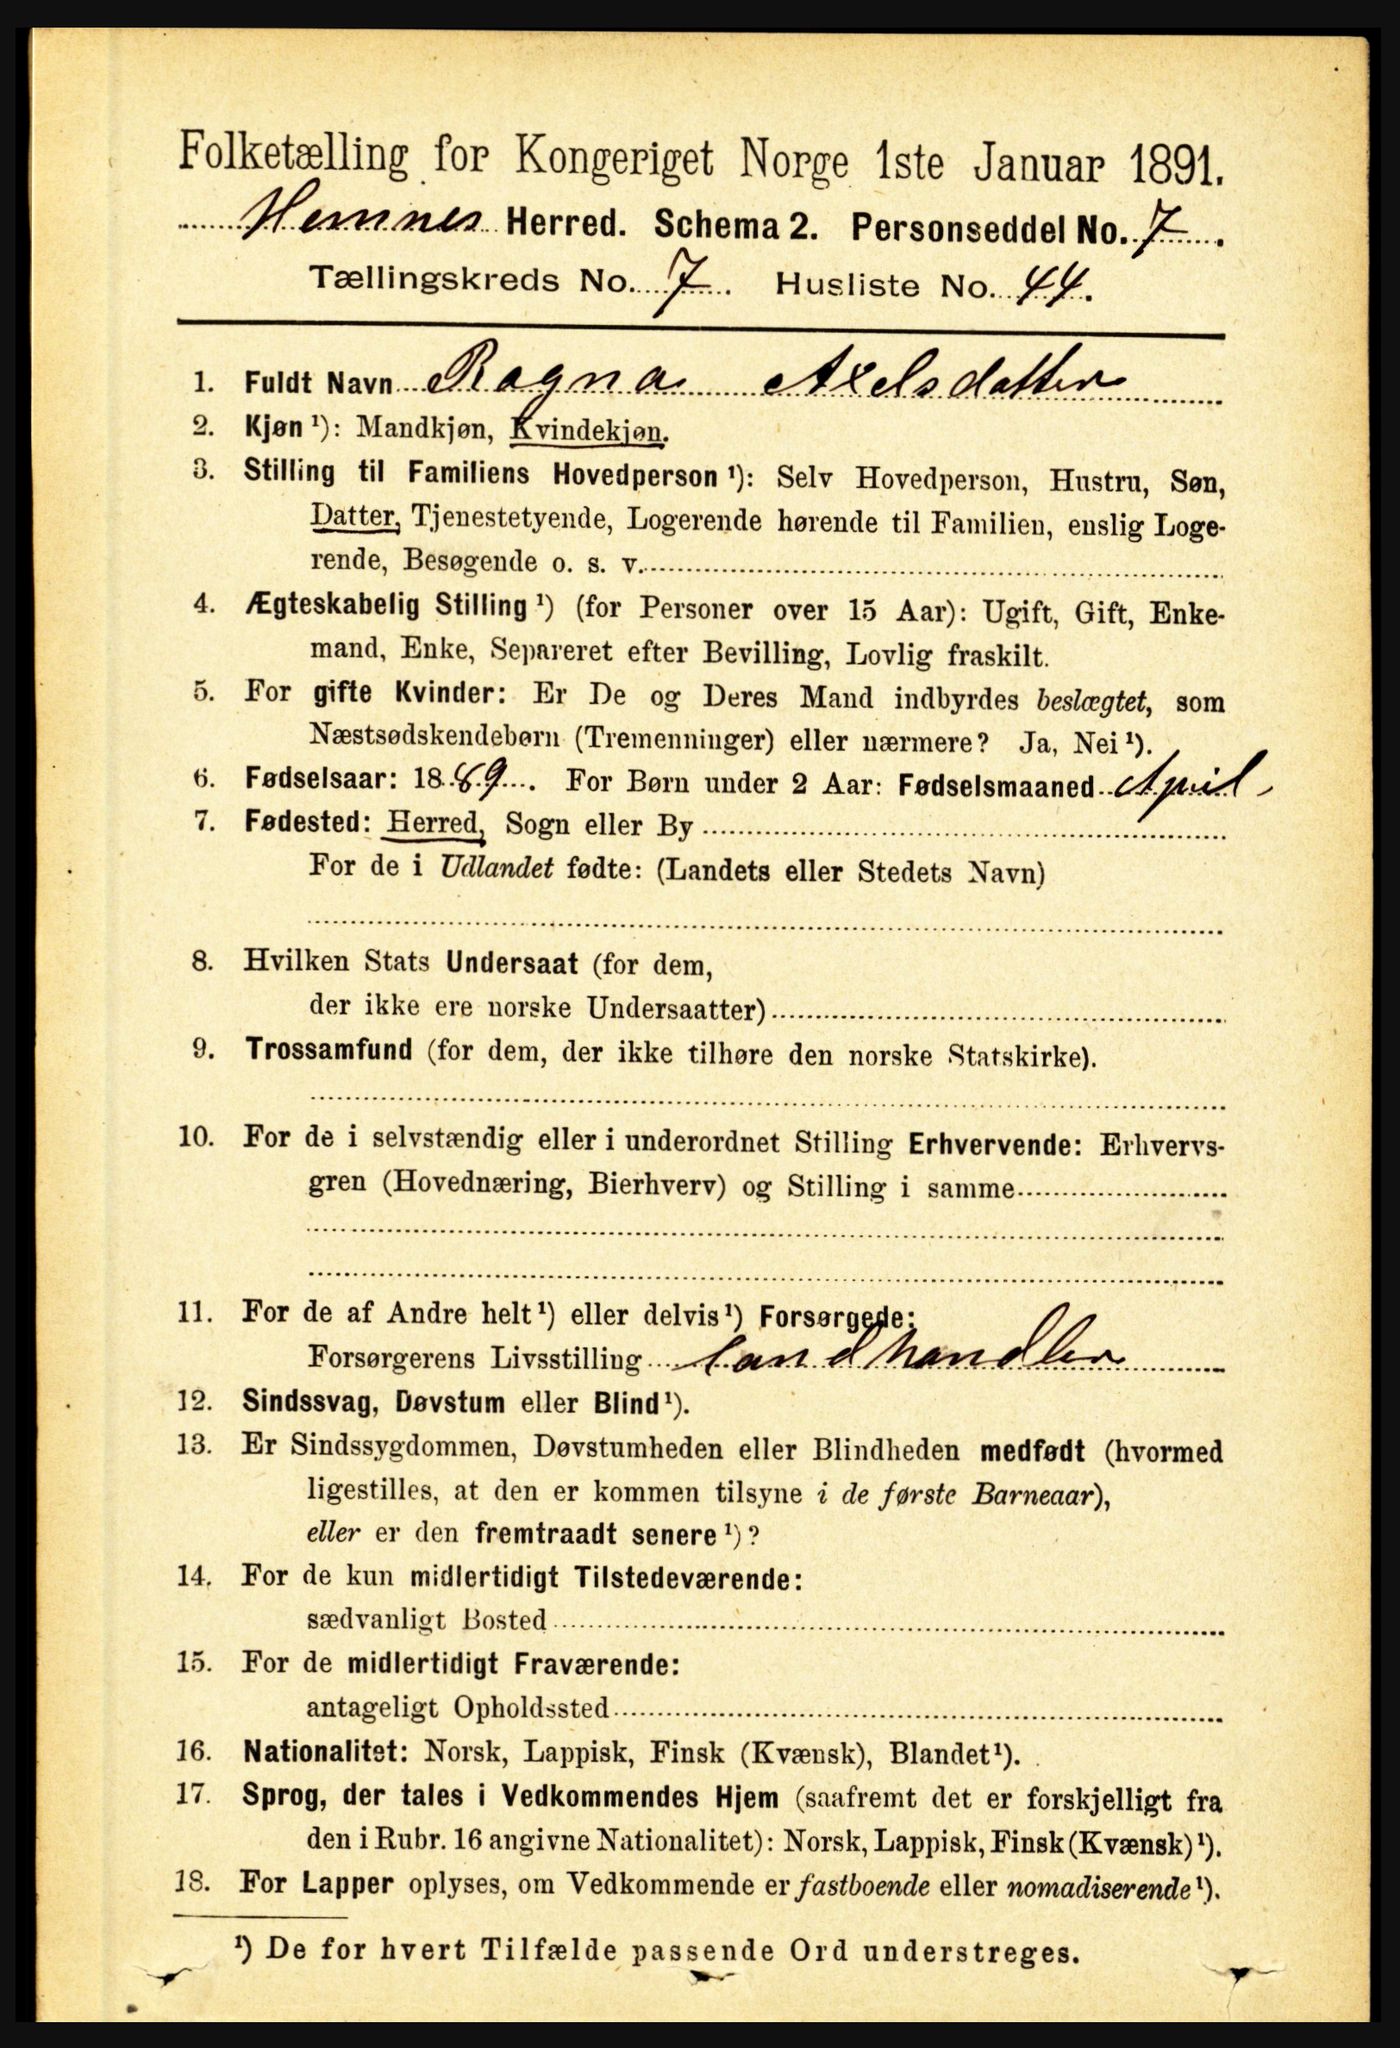 Folketælling for Kongeriget Norge 1ste Januar 1891.
Hemnes Herred. Schema 2. Personseddel No. 7.
Tællingskreds No. 7. Husliste No. 44.
1. Fuldt Navn Ragna Axelsdatter
2. Kjøn ¹): Mandkjøn, Kvindekjøn.
3. Stilling til Familiens Hovedperson ¹): Selv Hovedperson, Hustru, Søn,
Datter, Tjenestetyende, Logerende hørende til Familien, enslig Loge-
rende, Besøgende o. s. v.
4. Ægteskabelig Stilling ¹) (for Personer over 15 Aar): Ugift, Gift, Enke-
mand, Enke, Separeret efter Bevilling, Lovlig fraskilt.
5. For gifte Kvinder: Er De og Deres Mand indbyrdes beslægtet, som
Næstsødskendebørn (Tremenninger) eller nærmere? Ja, Nei ¹).
6. Fødselsaar: 1889. For Børn under 2 Aar: Fødselsmaaned April
7. Fødested: Herred, Sogn eller By
For de i Udlandet fødte: (Landets eller Stedets Navn)
8. Hvilken Stats Undersaat (for dem,
der ikke ere norske Undersaatter)
9. Trossamfund (for dem, der ikke tilhøre den norske Statskirke).
10. For de i selvstændig eller i underordnet Stilling Erhvervende: Erhvervs-
gren (Hovednæring, Bierhverv) og Stilling i samme
11. For de af Andre helt ¹) eller delvis ¹) Forsørgede:
Forsørgerens Livsstilling Landhandler
12. Sindssvag, Døvstum eller Blind ¹).
13. Er Sindssygdommen, Døvstumheden eller Blindheden medfødt (hvormed
ligestilles, at den er kommen tilsyne i de første Barneaar),
eller er den fremtraadt senere ¹)?
14. For de kun midlertidigt Tilstedeværende:
sædvanligt Bosted
15. For de midlertidigt Fraværende:
antageligt Opholdssted
16. Nationalitet: Norsk, Lappisk, Finsk (Kvænsk), Blandet ¹).
17. Sprog, der tales i Vedkommendes Hjem (saafremt det er forskjelligt fra
den i Rubr. 16 angivne Nationalitet): Norsk, Lappisk, Finsk (Kvænsk) ¹).
18. For Lapper oplyses, om Vedkommende er fastboende eller nomadiserende ¹).
¹) De for hvert Tilfælde passende Ord understreges.